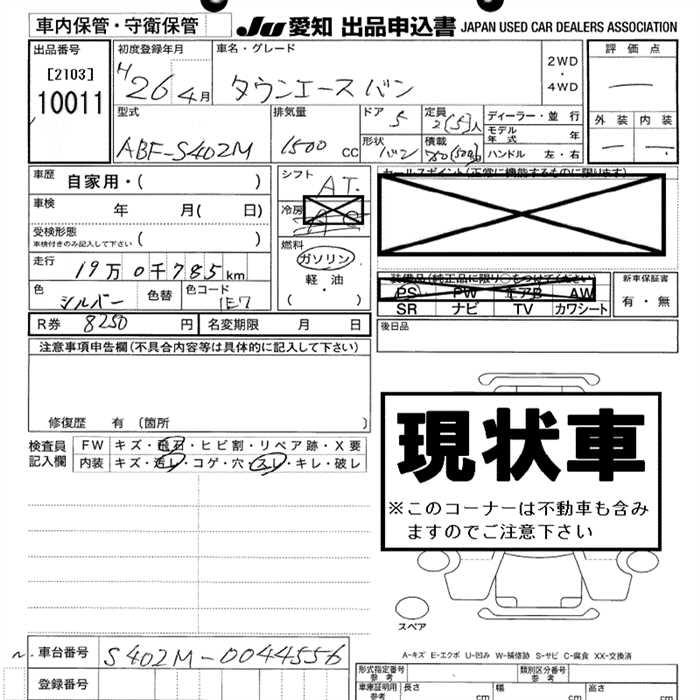 車内保管・守衛保管
JU 愛知 出品申込書 JAPAN USED CAR DEALERS ASSOCIATION
出品番号
[2103]
10011
初度登録年月
H26 4月
車名・グレード
タウンエースバン
2WD
・
4WD
評価点
―
外装 内装
― ―
型式
ABF-S402M
排気量
1500 CC
ドア 5
形状 バン
定員 2(5)人
積載
ディーラー・並行
モデル年式 年
ハンドル 左・右
車歴 自家用・( )
車検 年 月( 日)
受検形態 ( )
車検付きのみ記入して下さい
走行 19万0千785km
色 シルバー 色替 色コード 1E7
R券 8250 円 名変期限 月 日
シフト AT
冷房
燃料
ガソリン
軽油
( ・ )
セールスポイント(正常に機能するものに限ります)
装備品(純正品に限り○をつけてください)
PS PW エアB AW
SR ナビ TV カワシート
新車保証書
有・無
後日品
注意事項申告欄(不具合内容等は具体的に記入して下さい)
修復歴 有 〔箇所 〕
検査員記入欄
FW キズ・飛石・ヒビ割・リペア跡・X要
内装 キズ・汚レ・コゲ・穴・スレ・キレ・破レ
現状車
※このコーナーは不動車も含み
ますのでご注意下さい
スペア
A-キズ E-エクボ U-凹み W-補修跡 S-サビ C-腐食 XX-交換済
車台番号 S402M-0044556
登録番号
形式指定番号
参考
類別区分番号
参考
車庫証明用
参考
長さ cm 幅 cm 高さ cm